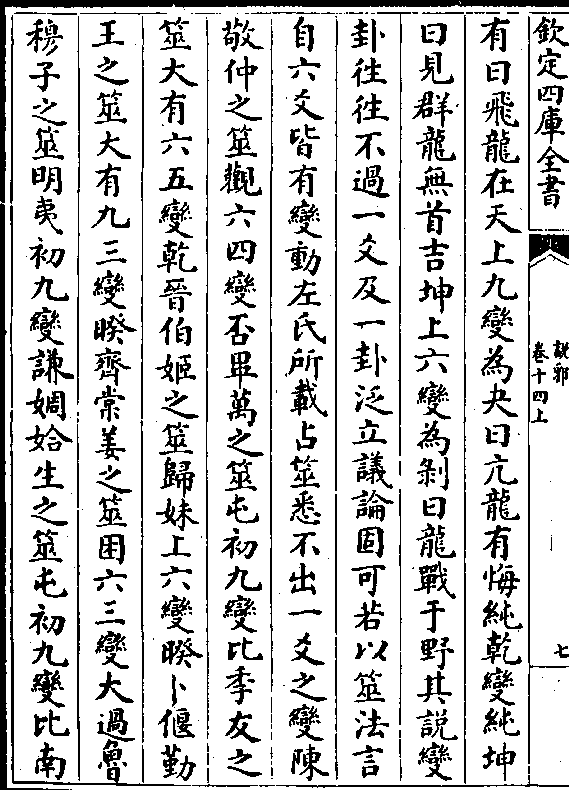 欽定四庫全書
說郛
卷十四上
七
有曰飛龍在天上九變為夬曰亢龍有悔純乾變純坤
曰見群龍無首吉坤上六變為剝曰龍戰于野其說變
卦徃徃不過一爻及一卦泛立議論固可若以筮法言
自六爻皆有變動左氏所載占筮悉不出一爻之變陳
敬仲之筮觀六四變否畢萬之筮屯初九變比季友之
筮大有六五變乾晉伯姬之筮歸妹上六變睽卜偃勤
王之筮大有九三變睽齊棠姜之筮困六三變大過魯
穆子之筮明夷初九變謙婤姶生之筮屯初九變比南